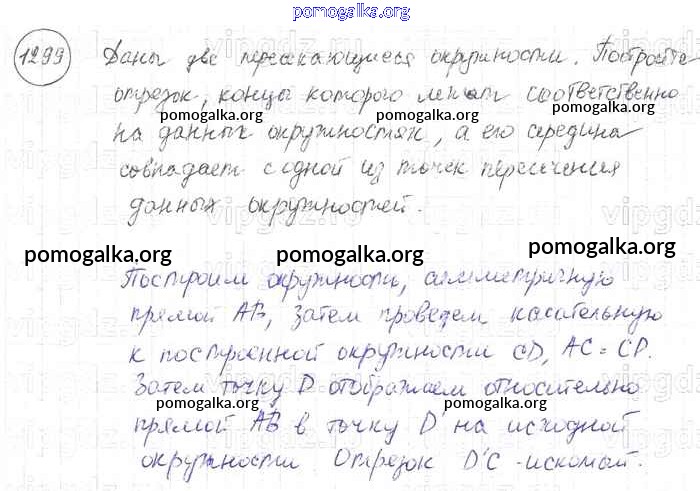 pomogalka.org
1299 Даны две пересекающиеся окружности. Постройте
отрезок, концы которого лежат соответственно
на данных окружностях, а его середина
совпадает с одной из точек пересечения
данных окружностей.
pomogalka.org
pomogalka.org
pomogalka.org
pomogalka.org
pomogalka.org
pomogalka.org
pomogalka.org
Построим окружности, симметричную
прямой АВ, затем проведем касательную
к построенной окружности CD, AC = CD.
Затем точку D отображаем относительно
прямой АВ в точку D' на исходной
окружности Отрезок D'C - искомый.
pomogalka.org
pomogalka.org
pomogalka.org
pomogalka.org
pomogalka.org